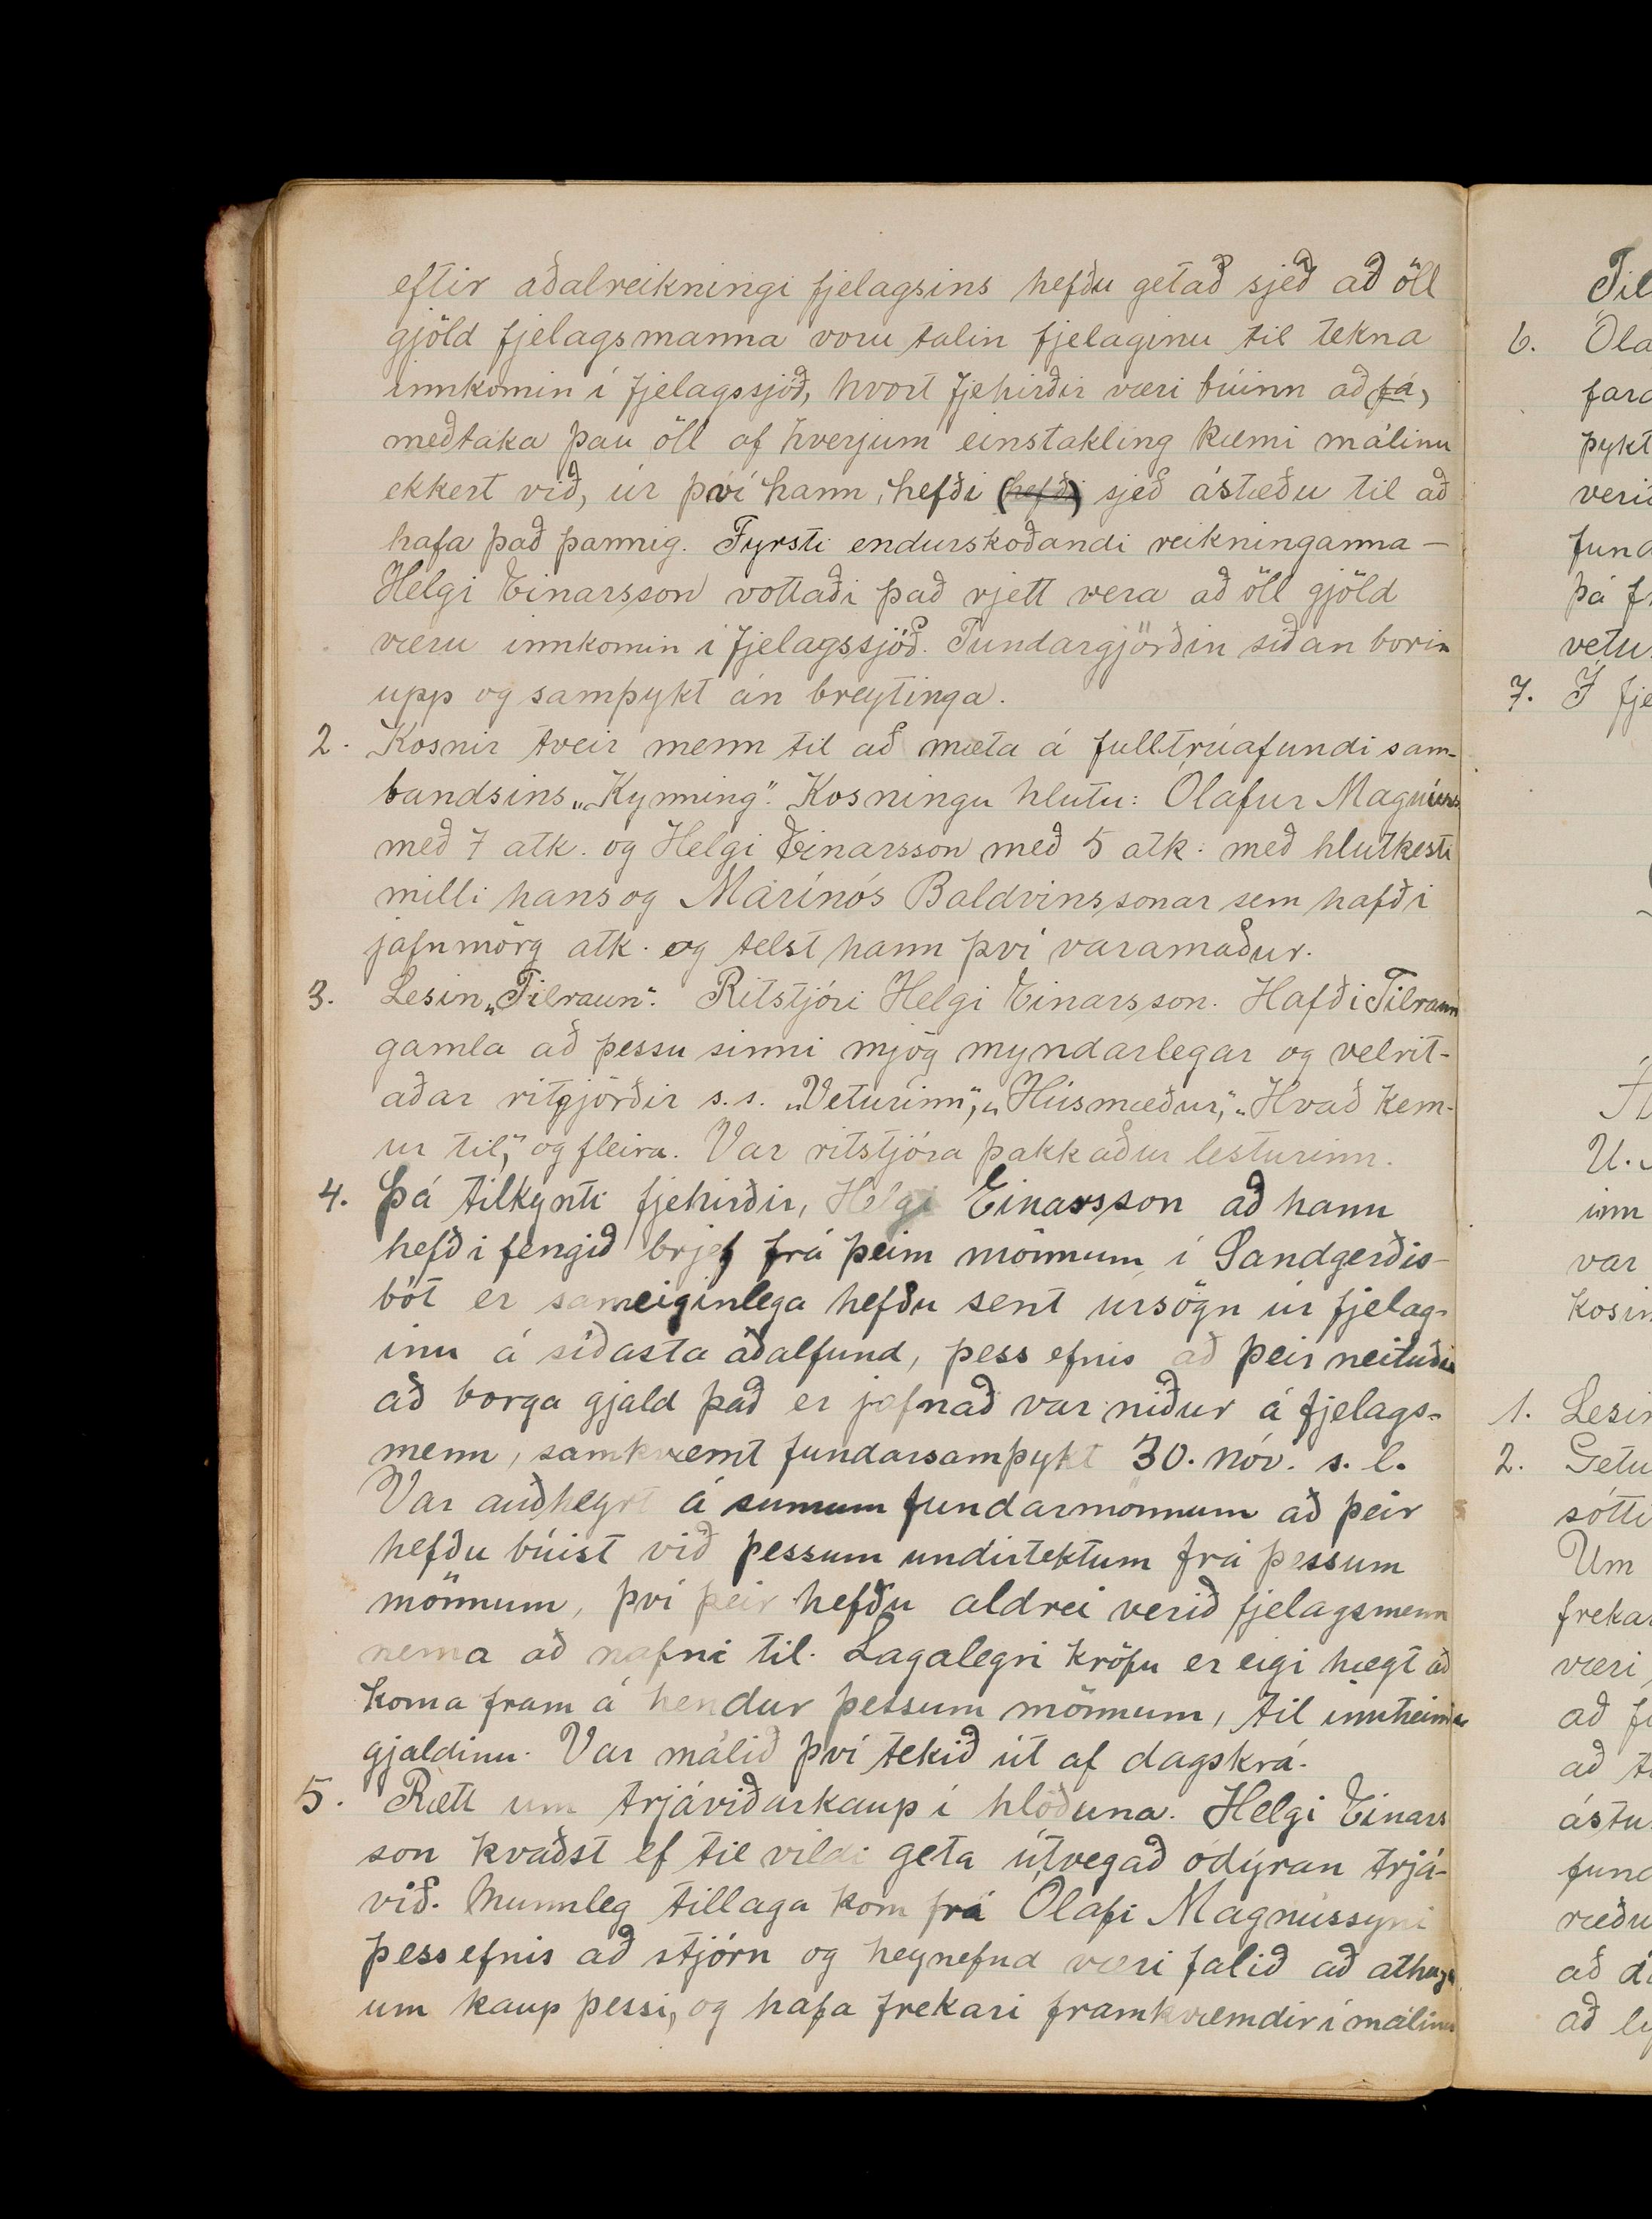 eftir aðalreikningi fjelagsins hefðu getað sjeð að öll
gjöld fjelagsmanna voru talin fjelaginu til tekna
innkomin í fjelagssjóð, hvort fjehirðir væri búinn að (fá)
meðtaka þau öll af hverjum einstakling kæmi málinu
ekkert við, úr því hann, hefði (hefði) sjeð ástæðu til að
hafa það þannig. Fyrsti endurskoðandi reikninganna —
Helgi Einarsson vottaði það rjett vera að öll gjöld
væru innkomin í fjelagssjóð. Fundargjörðin síðan borin
upp og samþykt án breytinga.
2. Kosnir tveir menn til að mæta á fulltrúafundi sam-
bandsins „Kynning". Kosningu hlutu: Ólafur Magnúss
með 7 atk. og Helgi Einarsson með 5 atk. með hlutkesti
milli hans og Marínós Baldvinssonar sem hafði
jafnmörg atk. og telst hann því varamaður.
3. Lesin „Tilraun". Ritstjóri Helgi Einarsson. Hafði Tilraun
gamla að þessu sinni mjög myndarlegar og velrit-
aðar ritgjörðir s.s. „Veturinn", „Húsmæður", „Hvað kem-
ur til", og fleira. Var ritstjóra þakkaður lesturinn.
4. Þá tilkynti fjehirðir, Helgi Einarsson að hann
hefði fengið brjef frá þeim mönnum í Sandgerðis-
bót er sameiginlega hefðu sent ursögn úr fjelag-
inu á síðasta aðalfund, þess efnis að þeir neituðu
að borga gjald það er jafnað var niður á fjelags-
menn, samkvæmt fundarsamþykt 30. nóv. s.l.
Var auðheyrt á sumum fundarmönnum að þeir
hefðu búist við þessum undirtektum frá þessum
mönnum, því þeir hefðu aldrei verið fjelagsmenn
nema að nafni til. Lagalegri kröfu er eigi hægt að
koma fram á hendur þessum mönnum, til innheimtu
gjaldinu. Var málið því tekið út af dagskrá.
5. Rætt um trjáviðarkaup í hlöðuna. Helgi Einars
son kvaðst ef til vildi geta útvegað ódýran trjá-
við. Munnleg tillaga kom frá Ólafi Magnússyni
þess efnis að stjórn og heynefnd væri falið að athuga
um kaup þessi, og hafa frekari framkvæmdir í málinu
Til
6.
þykt
þá
7. Í fje
U.
inn
var
kosin
1. Lesin
2. Getu
sótti
Um
væri
að
að
að
að